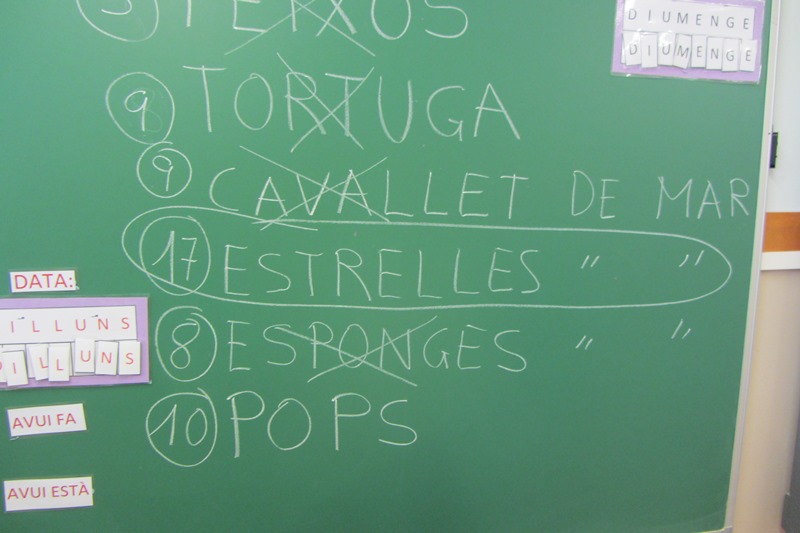 5 PEIXOS
DIUMENGE
DIUMENGE
9 TORTUGA
9 CAVALLET DE MAR
17 ESTRELLES " "
8 ESPONGES " "
10 POPS
DATA:
ILLUNS
DILLUNS
AVUI FA
AVUI ESTÀ